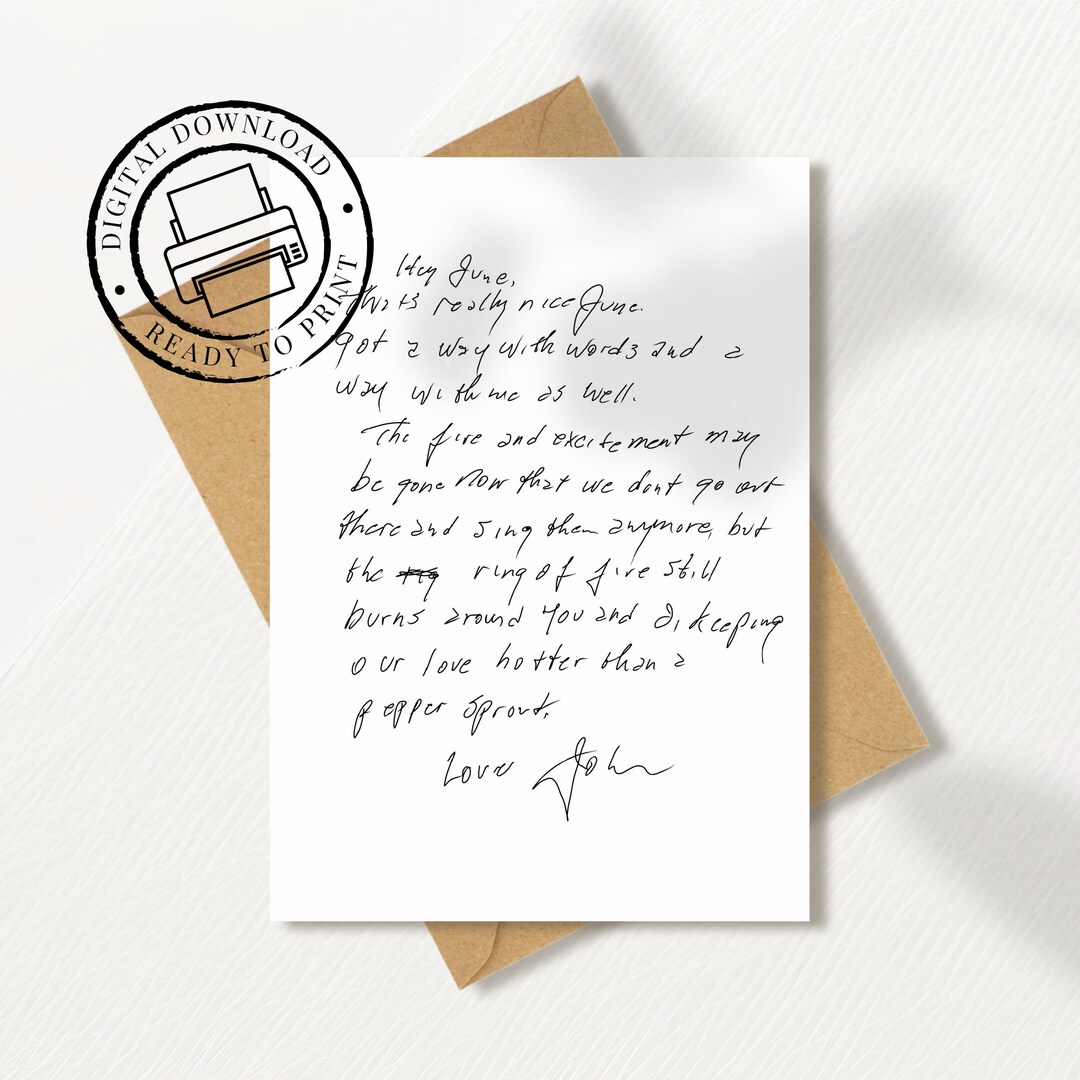 DIGITAL DOWNLOAD
READY TO PRINT
Hey June,
That's really nice June.
got a way with words and a
way with me as well.
The fire and excitement may
be gone now that we dont go out
there and sing them anymore, but
the ring of fire still
burns around you and I, keeping
our love hotter than a
pepper sprout.
Love John